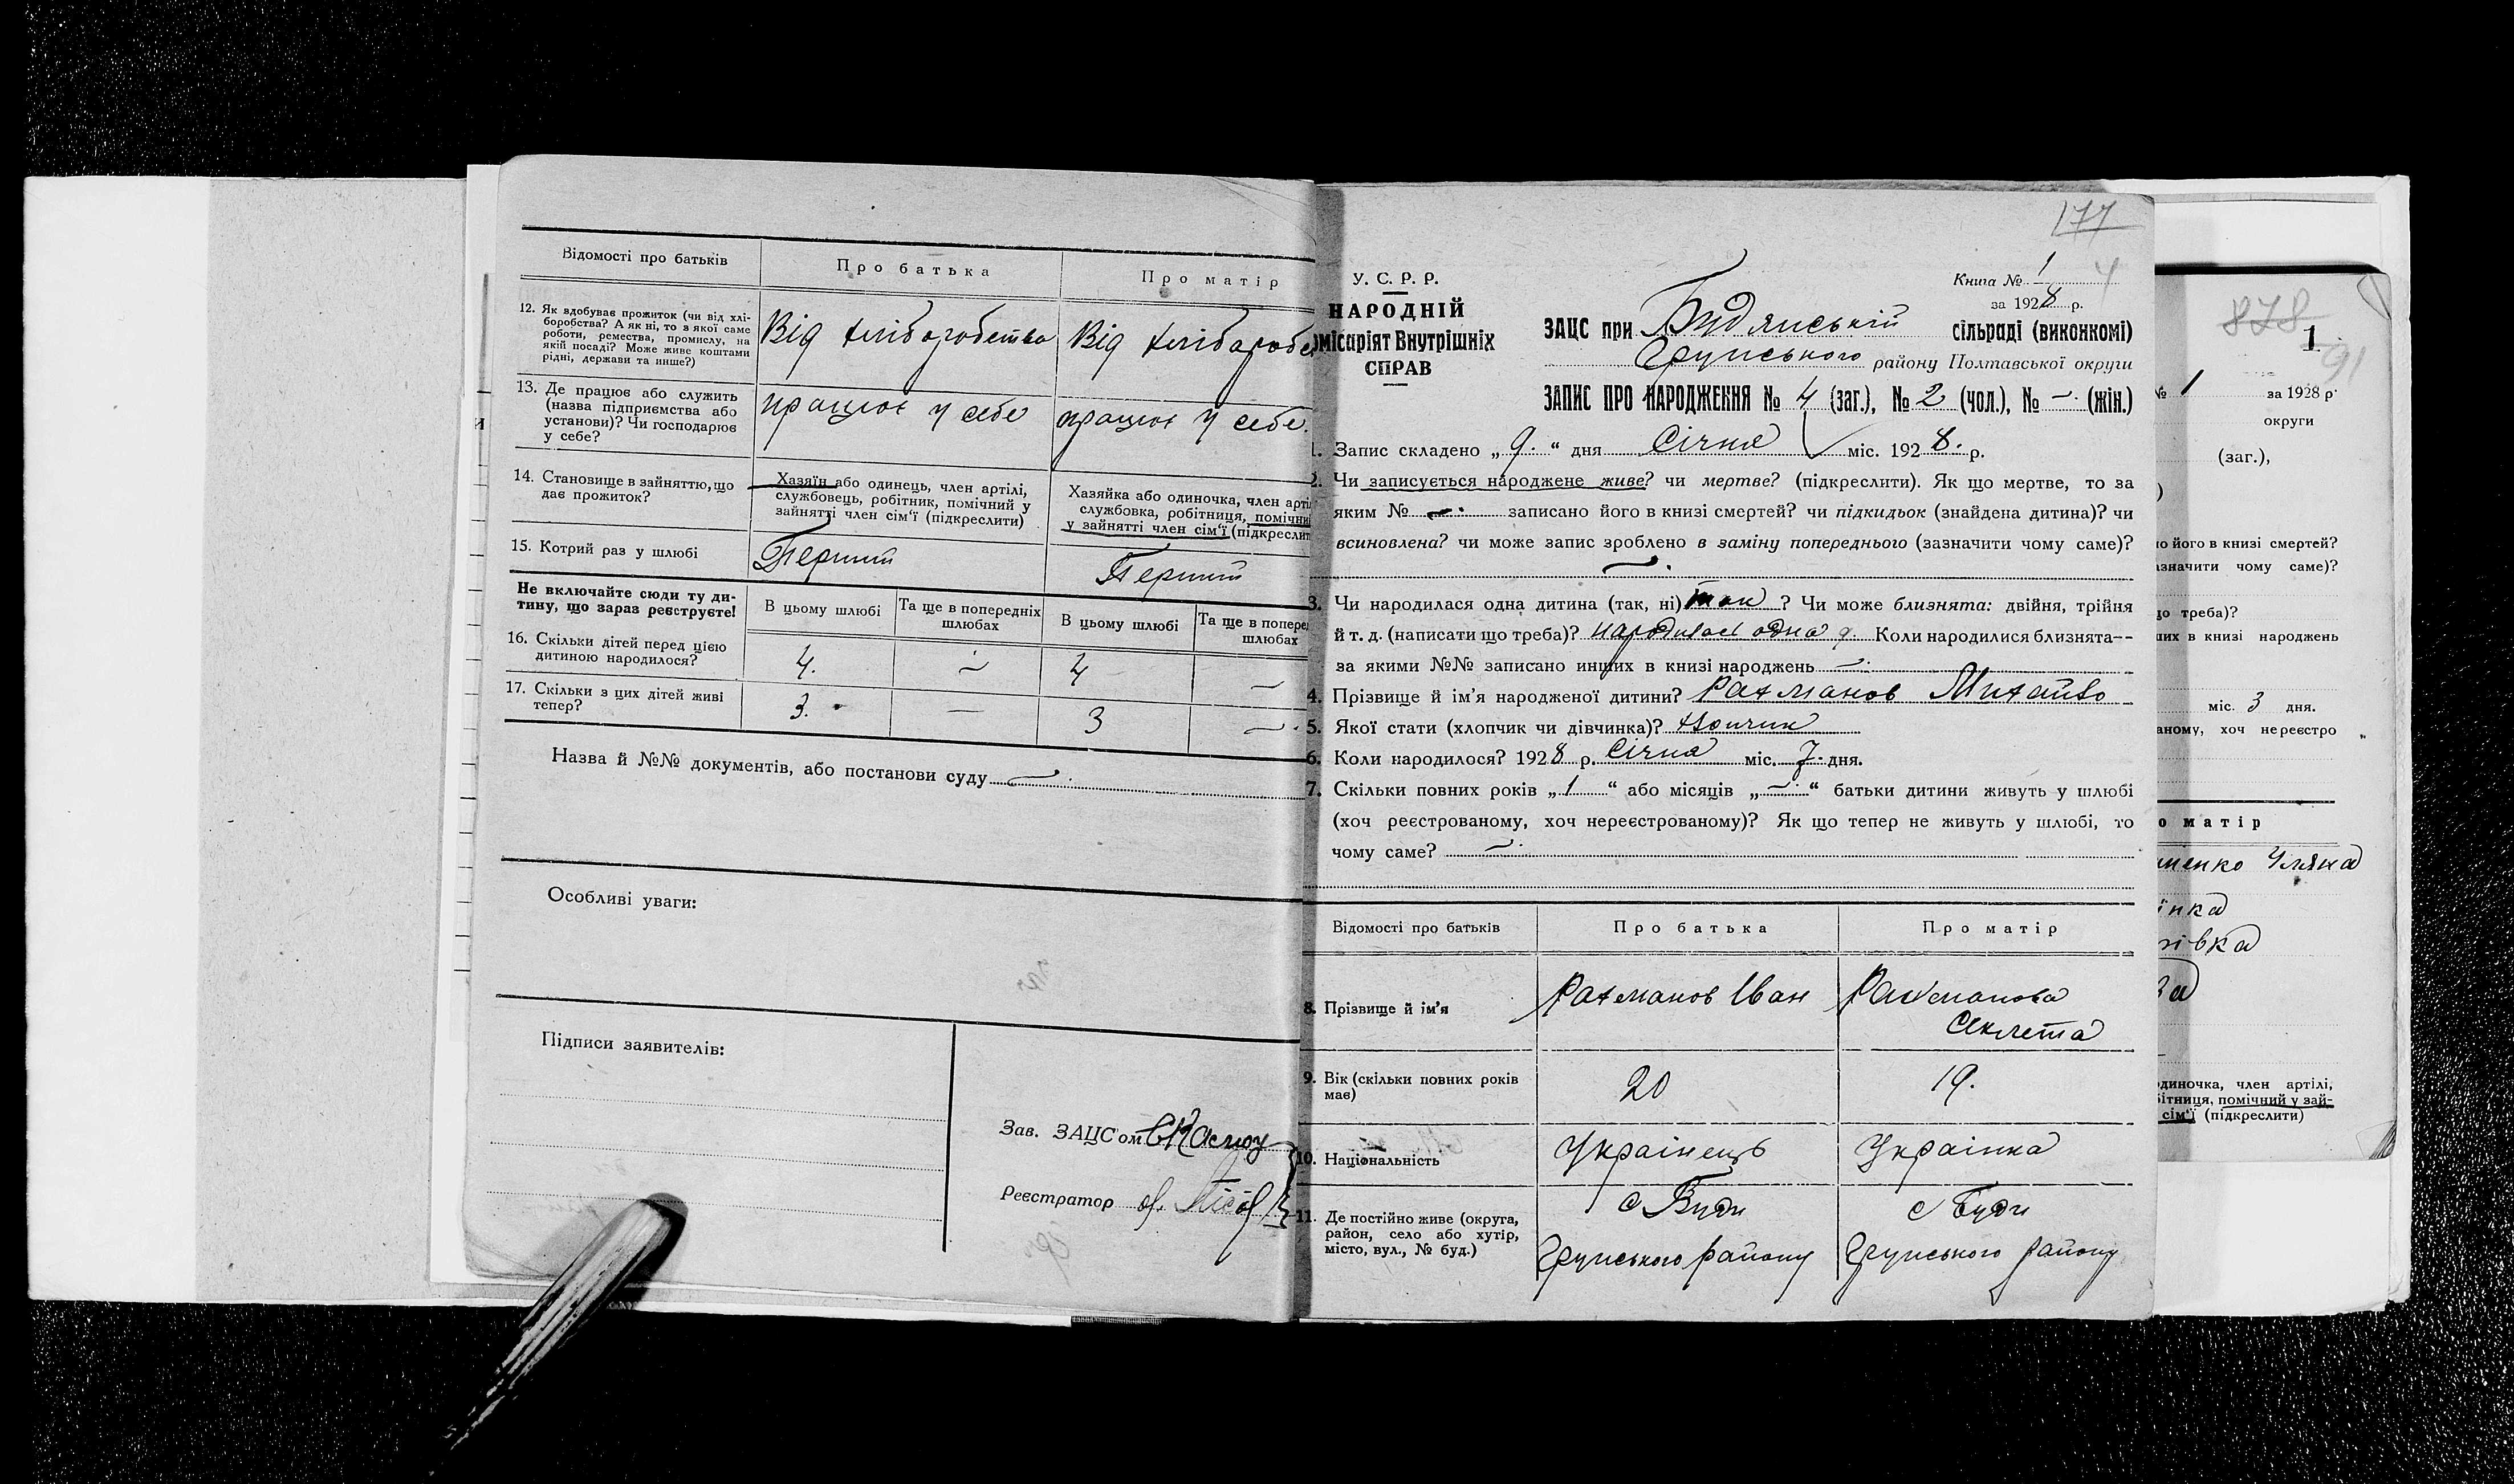 Відомості про батьків
Про батька
Про матір
12. Як здобуває прожиток (чи від хлі-
боробства? А як ні, то з якої саме
роботи, ремества, промислу, на
якій посаді? Може живе коштами
рідні, держави та инше?)
Від хліборобства
Від хлібороб
13. Де працює або служить
(назва підприємства або
установи)? Чи господарює
у себе?
працює у себе
працює у себе.
14. Становище в зайняттю, що
дає прожиток?
Хазяїн або одинець, член артілі,
службовець, робітник, помічний у
зайнятті член сім'ї (підкреслити)
Хазяйка або одиночка, член арті
службовка, робітниця, помічни
у зайнятті член сім'ї (підкреслит
15. Котрий раз у шлюбі
Перший
Перший
Не включайте сюди ту ди-
тину, що зараз реєструєте!
В цьому шлюбі
Та ще в попередніх
шлюбах
В цьому шлюбі
Та ще в попере
шлюбах
16. Скільки дітей перед цією
дитиною народилося?
4. — 4 —
17. Скільки з цих дітей живі
тепер?
3. — 3 —
Назва й №№ документів, або постанови суду —
Особливі уваги:
Підписи заявителів:
Зав. ЗАЦС'ом
Реєстратор
177
У. С. Р. Р.
НАРОДНІЙ
омісаріят Внутрішніх
СПРАВ
Книга № 1
4
за 1928 р.
ЗАЦС при Будянській сільраді (виконкомі)
Грунського району Полтавської округи
ЗАПИС ПРО НАРОДЖЕННЯ № 4 (заг.), № 2 (чол.), № — (жін.)
1. Запис складено „9.“ дня Січня міс. 1928. р.
2. Чи записується народжене живе? чи мертве? (підкреслити). Як що мертве, то за
яким № — записано його в книзі смертей? чи підкидьок (знайдена дитина)? чи
всиновлена? чи може запис зроблено в заміну попереднього (зазначити чому саме)?
—
3. Чи народилася одна дитина (так, ні) так? Чи може близнята: двійня, трійня
й т. д. (написати що треба)? народилась одна Коли народилися близнята—
за якими №№ записано инших в книзі народжень —
4. Прізвище й ім'я народженої дитини? Рахманов Михайло
5. Якої стати (хлопчик чи дівчинка)? хлопчик
6. Коли народилося? 1928 р. Січня міс. 7. дня.
7. Скільки повних років „1“ або місяців „—“ батьки дитини живуть у шлюбі
(хоч реєстрованому, хоч нереєстрованому)? Як що тепер не живуть у шлюбі, то
чому саме? —
Відомості про батьків
Про батька
Про матір
8. Прізвище й ім'я
Рахманов Іван
Рахманова
Секлета
9. Вік (скільки повних років
має)
20
19.
10. Національність
Українець
Українка
11. Де постійно живе (округа,
район, село або хутір,
місто, вул., № буд.)
с Буди
Грунського району
с Буди
Грунського району
878
1
91
№ 1 за 1928 р.
округи
(заг.),
о його в книзі смертей?
азначити чому саме)?
що треба)?
их в книзі народжень
міс. 3 дня.
аному, хоч нереєстро
о матір
менко Уляна
їнка
івка
диночка, член артілі,
бітниця, помічний у зай-
сім'ї (підкреслити)